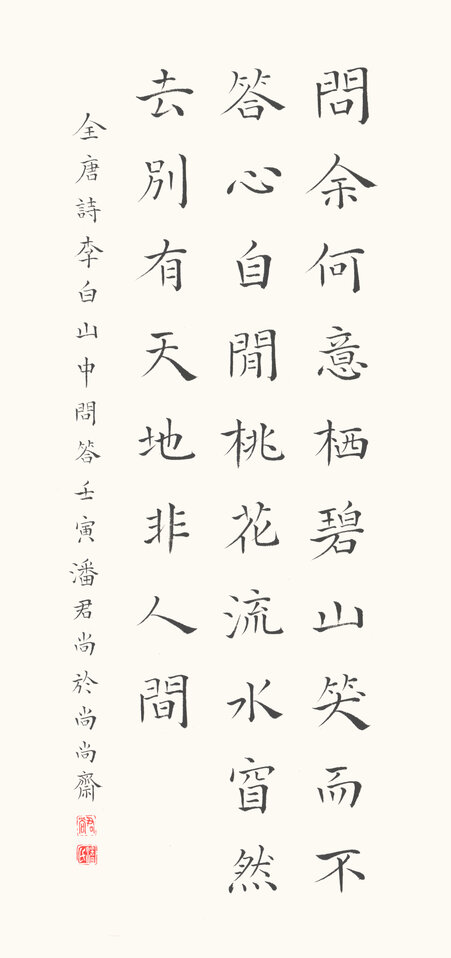 問余何意栖碧山笑而不
答心自閒桃花流水窅然
去別有天地非人間
全唐詩李白山中問答壬寅潘君尚於尚尚齋